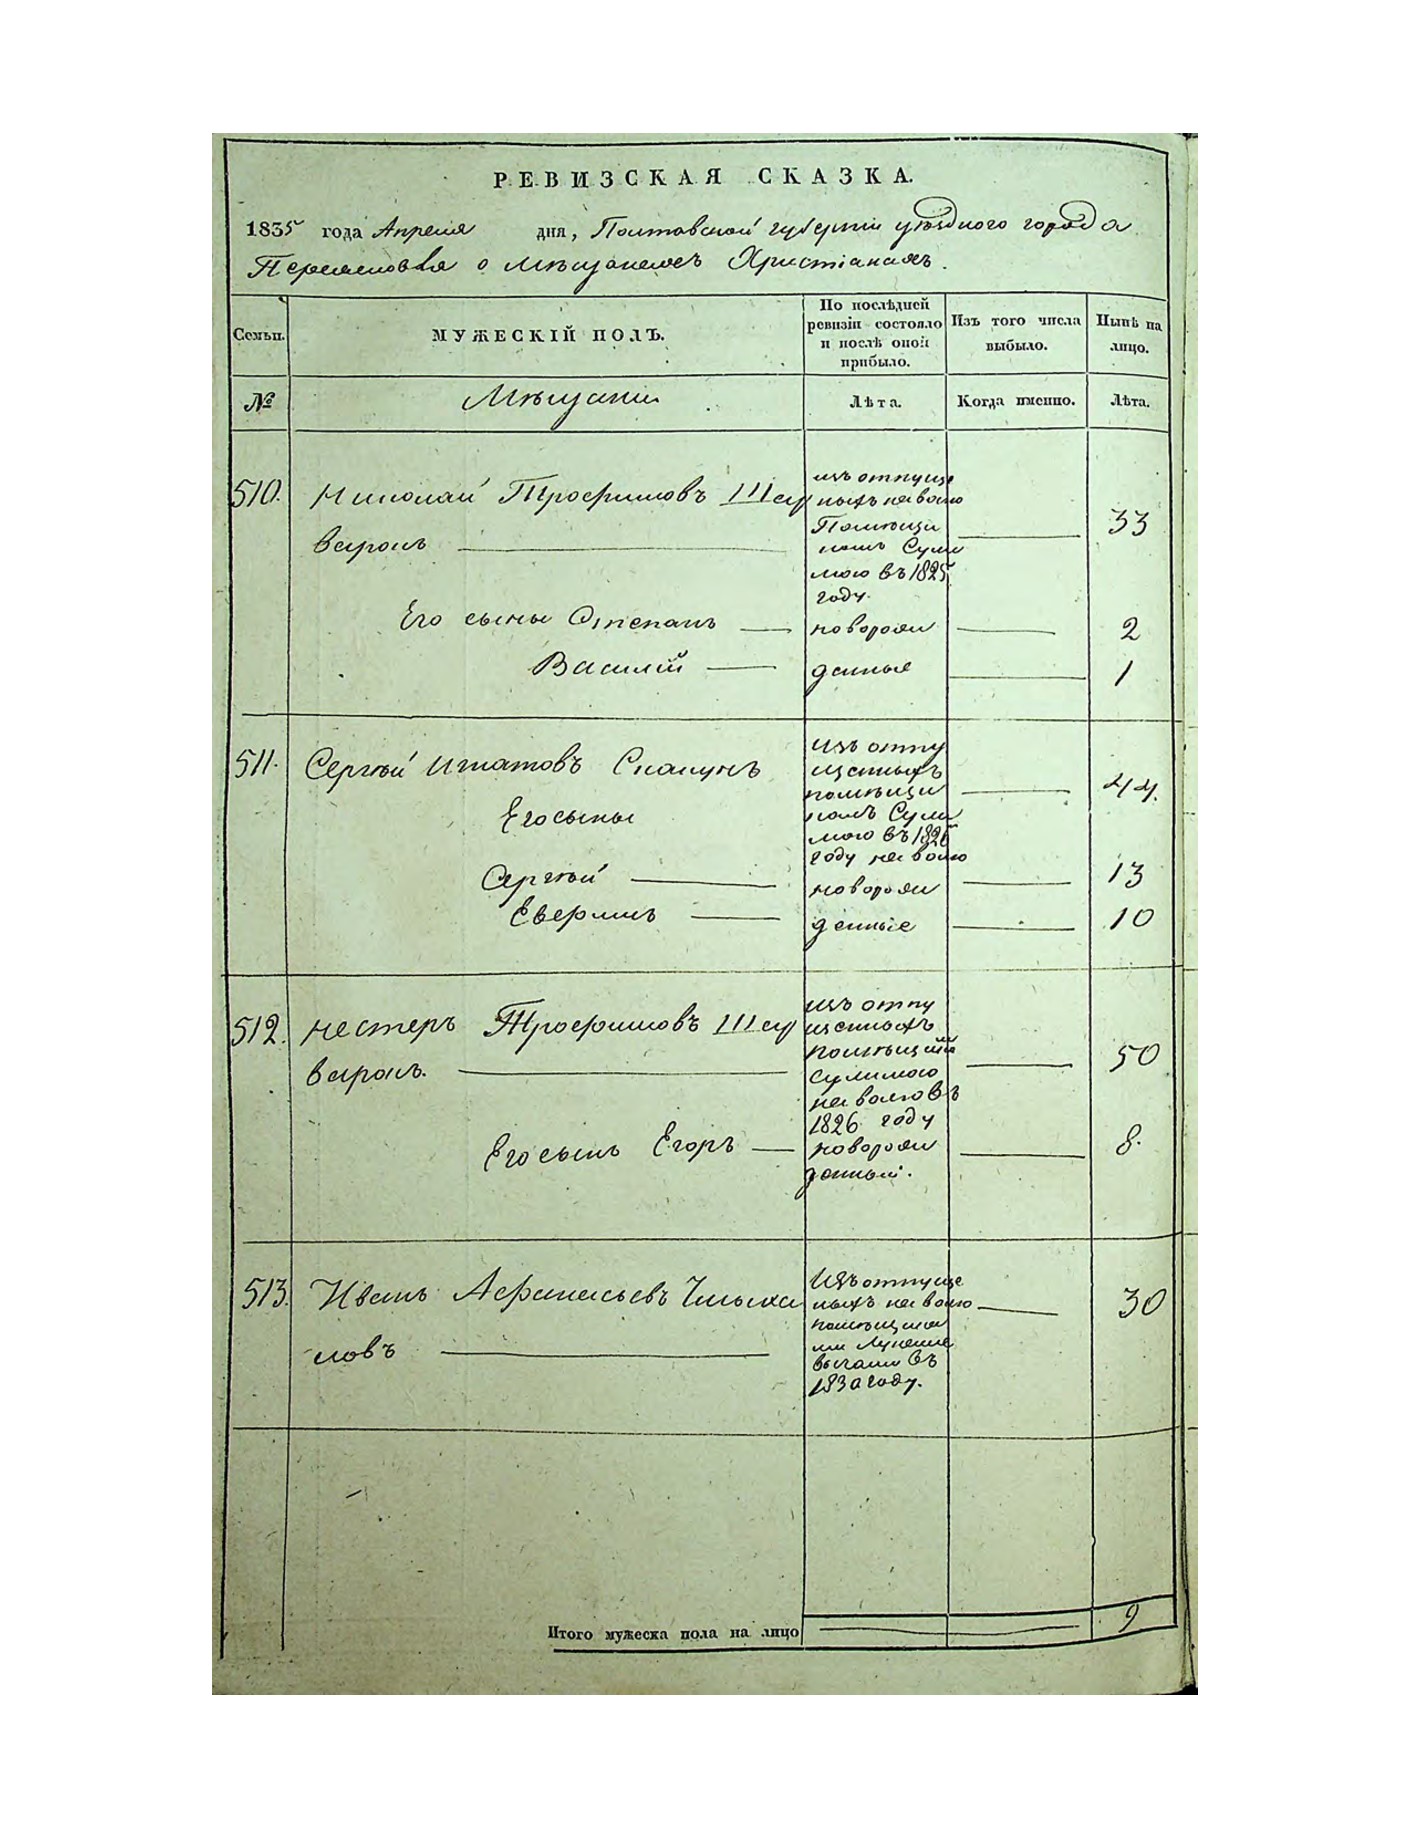 РЕВИЗСКАЯ СКАЗКА.
1835 года Апреля дня, Полтавской губерніи уѣзднаго города
Переяслова о мѣщанахъ Христіанахъ.
Семьи.
МУЖЕСКІЙ ПОЛЪ.
По послѣдней
ревизіи состояло
и послѣ оной
прибыло.
Изъ того числа
выбыло.
Нынѣ на
лицо.
№
Мѣщани
Лѣта.
Когда именно.
Лѣта.
510.
Николай Трофимовъ Шау
варанъ
изъ отпуще
ныхъ на волю
Помѣщи
комъ Сули
мою въ 1825
году.
33
Его сыны Степанъ
новорож
2
Василій
данные
1
511.
Сергѣй Игнатовъ
изъ отпу
щенныхъ
помѣщи
комъ Сули
мою въ 1826
году на волю
44.
Его сыны
Сергѣй
новорож
13
денніе
10
512.
Нестеръ Трофимовъ Шау
варанъ.
изъ отпу
щенныхъ
помѣщицей
Сулимою
на волю въ
1826 году
50
Его сынъ Егоръ
новорож
данный.
8.
513.
Иванъ Афанасьевъ
ловъ
Изъ отпуще
ныхъ на волю
помѣщика
ми
въ
1830 году.
30
Итого мужеска пола на лицо
9